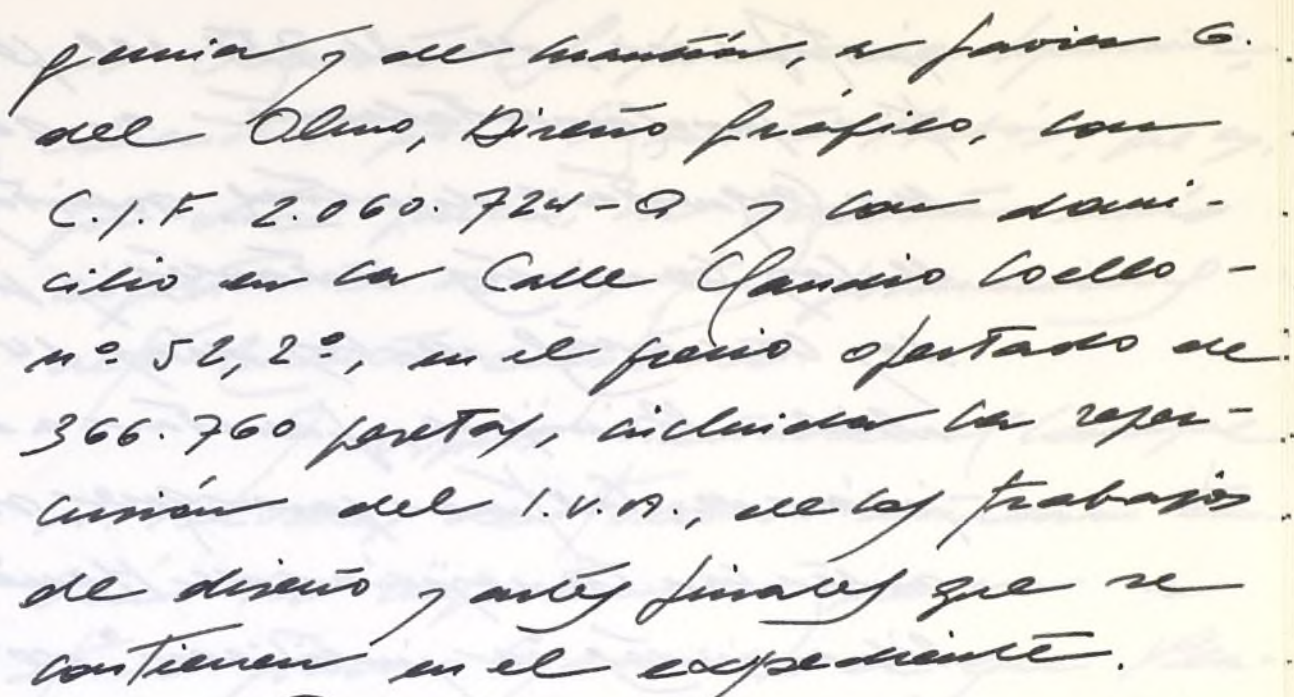 gencia y de tramitación, a Javier G.
del Olmo, Diseño Gráfico, con
C.I.F 2.060.724-Q y con domi-
cilio en la Calle Claudio Coello -
nº. 52, 2º, en el precio ofertado de
366.760 pesetas, incluida la reper-
cusión del I.V.A., de los trabajos
de diseño y artes finales que se
contienen en el expediente.